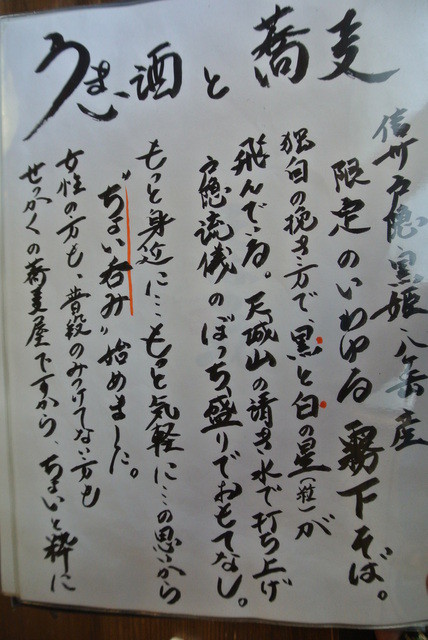 うまい酒と蕎麦
信州戸隠・黒姫・八ヶ岳産
限定のいわゆる霧下そば。
独自の挽き方で、黒と白の星(粒)が
飛んでいる。天城山の清き水で打ち上げ
戸隠流儀のぼっち盛りでおもてなし。
もっと身近に…もっと気軽に…の思いから
"ちょい呑み"始めました。
女性の方も、普段のみつけてない方も
せっかくの蕎麦屋ですから、ちょいと粋に